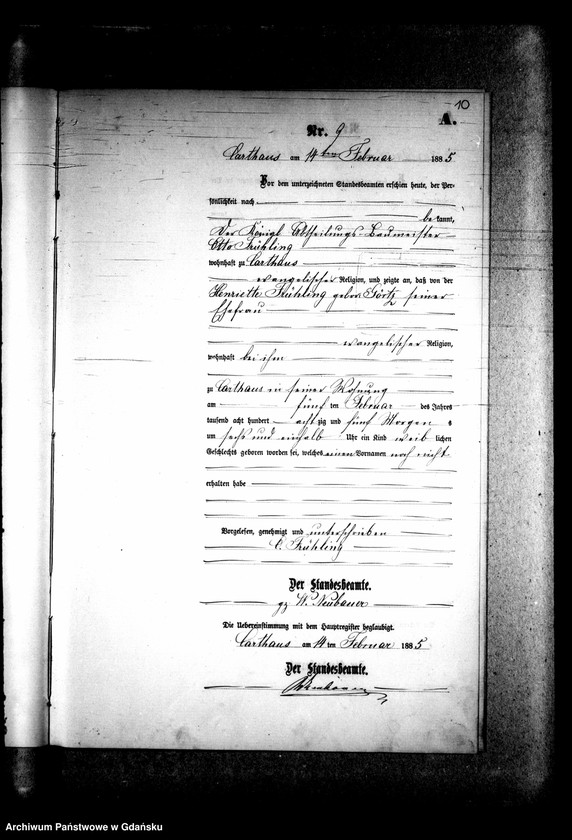 10
A.
Nr. 9
Carthaus am 14ten Februar 1885
Vor dem unterzeichneten Standesbeamten erschien heute, der Per-
sönlichkeit nach
be kannt,
Der Königl Abtheilungs-Baumeister
Otto Frühling
wohnhaft zu Carthaus
evangelischer Religion, und zeigte an, daß von der
Henriette Frühling geboren Görtz seiner
Ehefrau
evangelischer Religion,
wohnhaft bei ihm
zu Carthaus in seiner Wohnung
am fünf ten Februar des Jahres
tausend acht hundert acht zig und fünf Morgens
um sechs und einhalb Uhr ein Kind weib lichen
Geschlechts geboren worden sei, welches einen Vornamen noch nicht
erhalten habe
Vorgelesen, genehmigt und unterschrieben
O. Frühling
Der Standesbeamte.
gz W. Neubauer
Die Uebereinstimmung mit dem Hauptregister beglaubigt.
Carthaus am 14 ten Februar 1885
Der Standesbeamte.
Archiwum Państwowe w Gdańsku